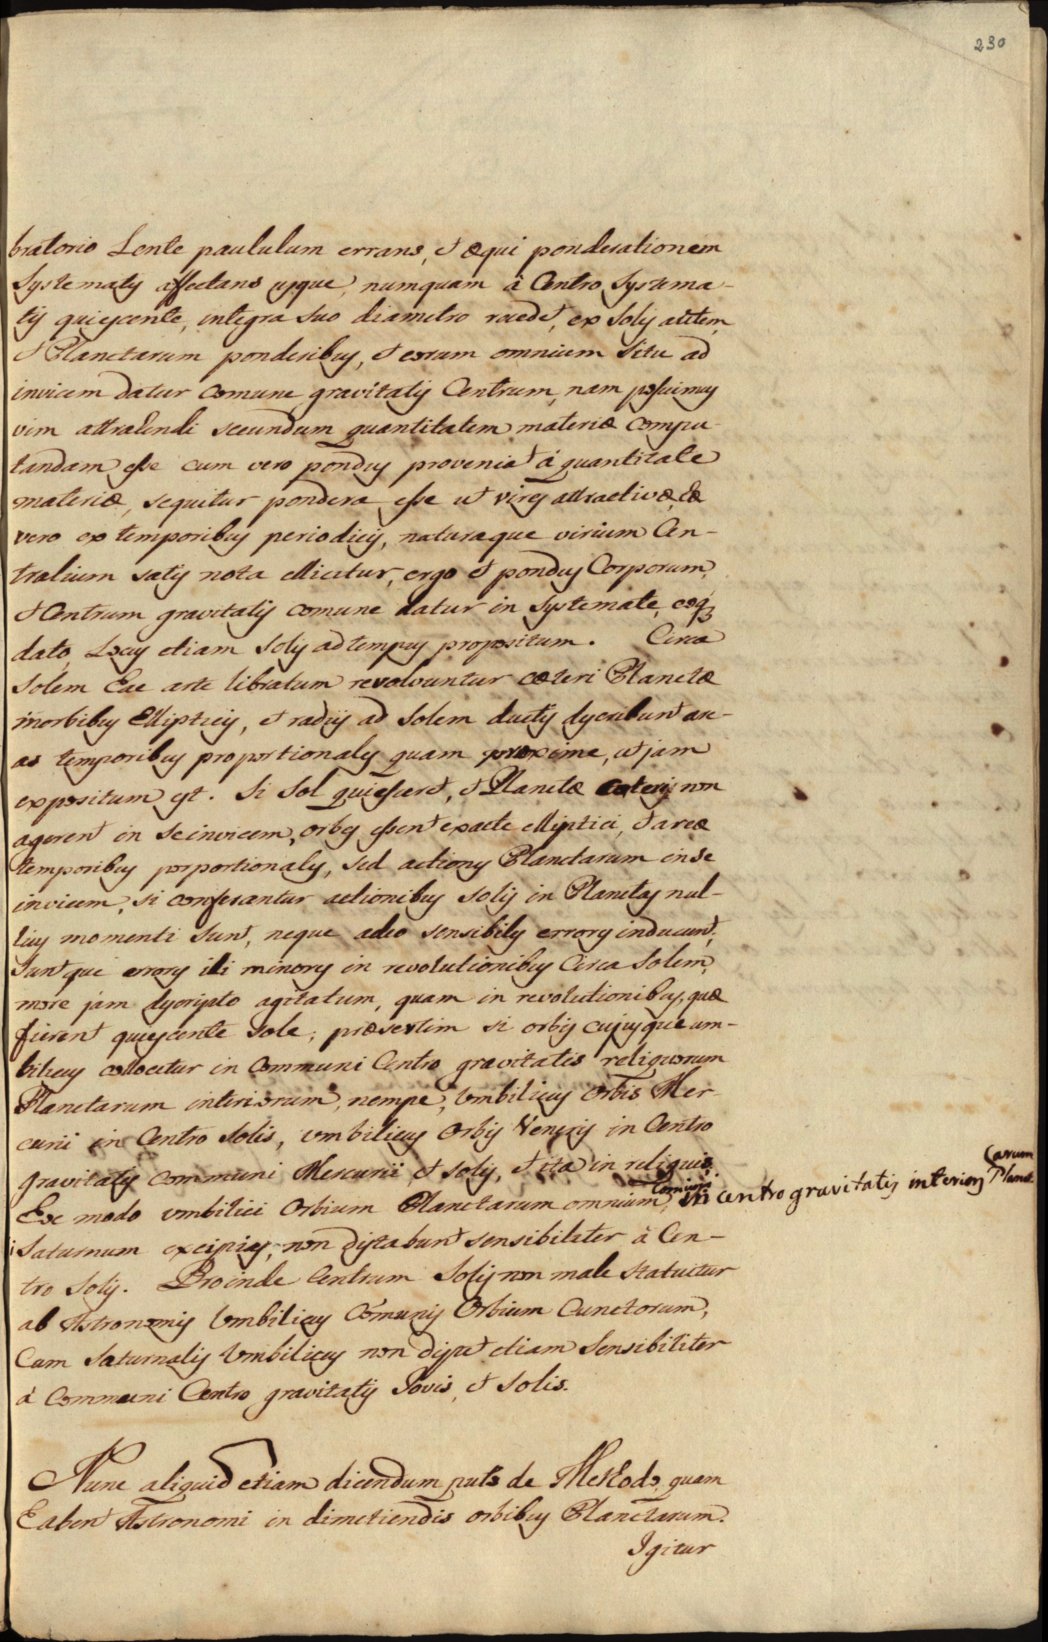 230
bratorio Lente paululum errans, et æqui ponderationem
Systematis affectans usque, numquam à Centro Systema-
tis quiescente, integra suo diametro recedet, ex Solis autem
et Planetarum ponderibus, et eorum omnium situ ad
invicem datur comune gravitatis Centrum, nam posuimus
vim attrahendi secundum quantitatem materiæ compu-
tandam esse cum vero pondus proveniat à quantitate
materiæ, sequitur pondera esse ut vires attractivæ, hæ
vero ex temporibus periodicis, naturaque virium Cen-
tralium satis nota elicitur, ergo et pondus Corporum,
et Centrum gravitatis comune datur in Systemate, eoq;
dato, Locus etiam Solis ad tempus propositum. Circa
Solem hac arte libratum revolvuntur cæteri Planetæ
in orbibus Ellipticis, et radiis ad Solem ductis describunt are-
as temporibus proportionales quam proxime, ut jam
expositum est. Si Sol quiesceret, et Planetæ cæteri non
agerent in se invicem, orbes essent exacte elliptici, et areæ
temporibus porportionales, sed actiones Planetarum in se
invicem, si conferantur actionibus Solis in Planetas nul-
lius momenti sunt, neque adeo sensibiles errores inducunt,
suntque errores illi minores in revolutionibus Circa Solem,
more jam descripto agitatum, quam in revolutionibus, quæ
fierent quiescente Sole; præsertim si orbis cujusque um-
bilicus collocetur in Communi Centro gravitatis reliquorum
Planetarum interiorum, nempe, Umbilicus Orbis Mer-
curii in Centro Solis, umbilicus Orbis Veneris in Centro
gravitatis communi Mercurii et Solis, et ita in reliquis.
Hoc modo umbilici Orbium Planetarum omnium, Comuni in centro gravitatis interiorum Planet
arum
i Saturnum excipias, non distabunt sensibiliter à Cen-
tro Solis. Proinde Centrum Solis non male statuetur
ab Astronomis Umbilicus Comunis Orbium Cunctorum,
Cum Saturnalis Umbilicus non distet etiam Sensibiliter
à Communi Centro gravitatis Jovis, et Solis.
Nunc aliquid etiam dicendum puto de Methodo, quam
habent Astronomi in dimetiendis orbibus Planetarum.
Igitur